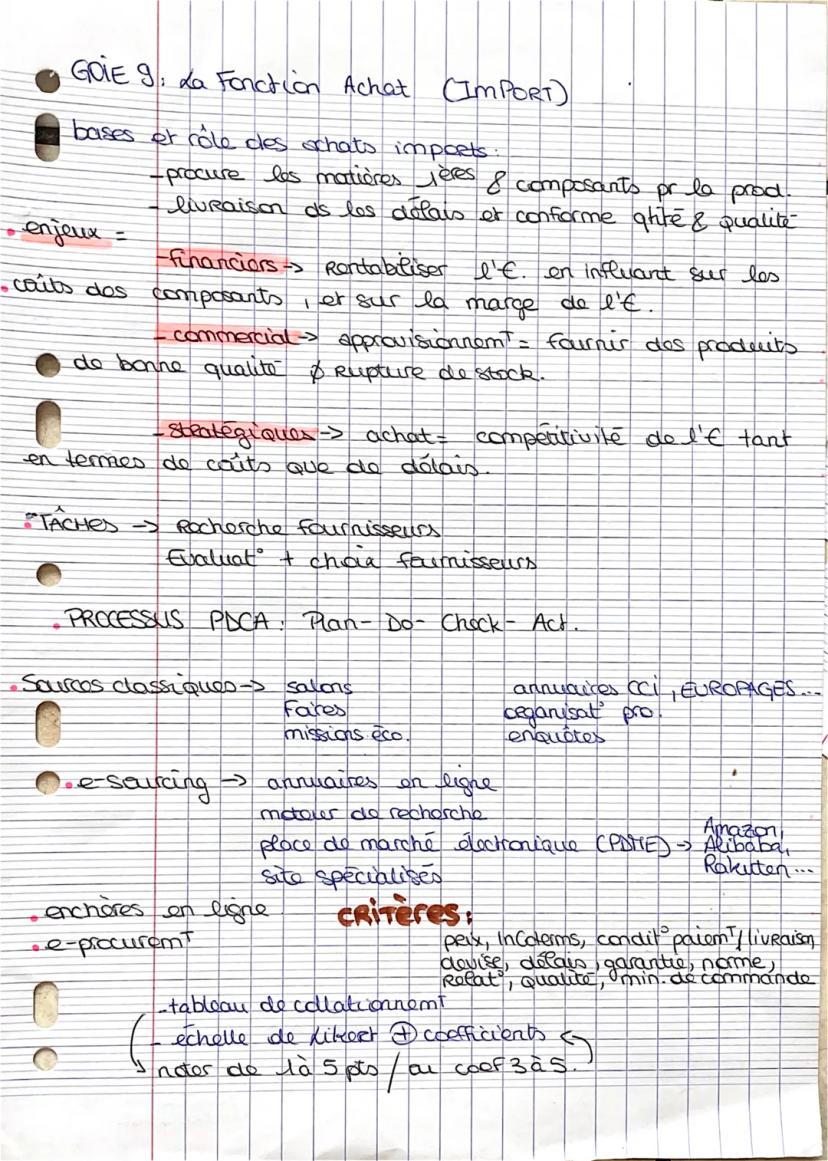 GOIE 9: La Fonction Achat (IMPORT)
bases et rôle des achats imports:
- procure les matières 1ères & composants pr la prod.
- livraison ds les délais et conforme qtité & qualité
• enjeux =
- financiers -> Rentabiliser l'€. en influant sur les
• coûts des composants, et sur la marge de l'€.
- commercial -> approvisionnemT = fournir des produits
de bonne qualité ∅ Rupture de stock.
- stratégiques -> achat = compétitivité de l'€ tant
en termes de coûts que de délais.
• TÂCHES -> Recherche fournisseurs
Evaluat° + choix fournisseurs
• PROCESSUS PDCA: Plan - Do - Check - Act.
• Sources classiques -> salons annuaires CCI, EUROPAGES...
Foires organisat° pro.
missions éco. enquêtes
• e-sourcing -> annuaires en ligne
moteur de recherche
place de marché électronique (PDME) -> Amazon, Alibaba, Rakuten...
site spécialisés
• enchères en ligne CRITÈRES:
• e-procuremT prix, Incoterms, condit° paiemT / livraison
devise, délais, garantie, norme,
Relat°, qualité, min. de commande
- tableau de collationnemT
- échelle de Likert ⊕ coefficients
noter de 1 à 5 pts / ou coef 3 à 5.